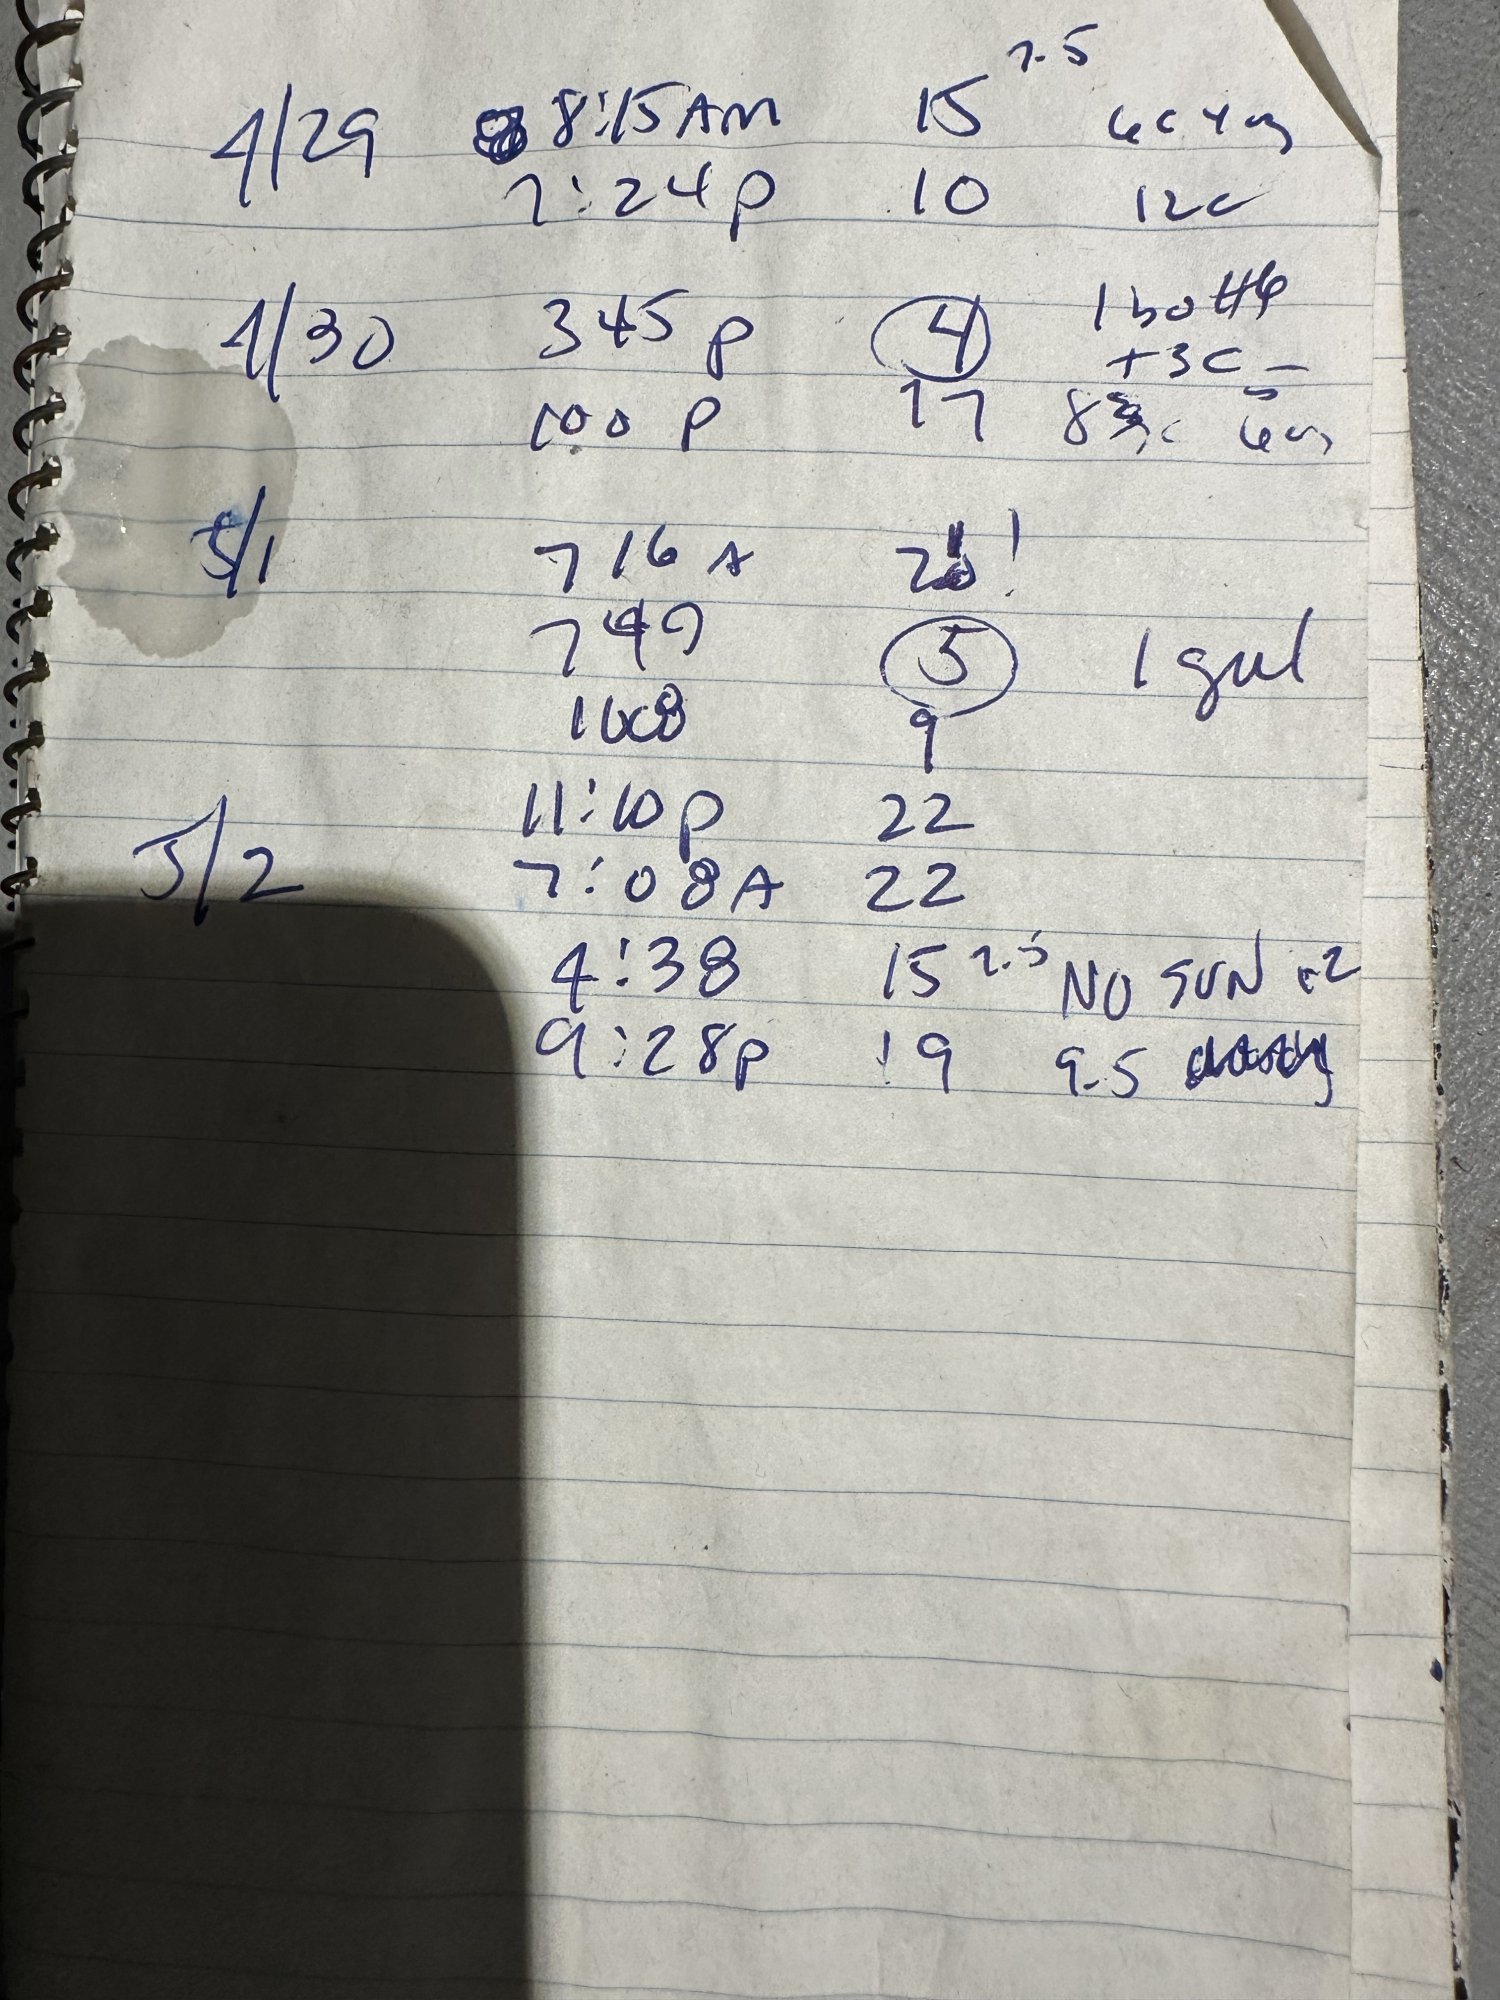 7.5
4/29 8:15 AM 15 6c
7:24 p 10 12c
4/30 345 p 4 1 bottle
+3c
100 p 17 8
5/1 7 16 A !
7 49 5 1 gal
9
11:10 p 22
5/2 7:08 A 22
4:38 15 7.5 NO SUN x2
9:28p 19 9.5